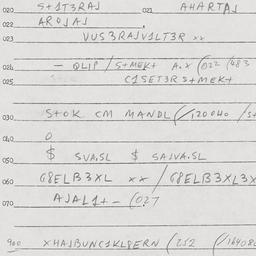 020 S+1T3RAJ 021 AHARTAJ
022 AROJAJ
023 VUS3RAJV1LT3R xx
024 — QLIP / S+MEK+ A.X (022 (483
025 C1SET3R S+MEK+
030 S+OK CM MANDL (/120040 /S+
040 0
050 $ SVA.SL $ SAJVA.SL
060 G8ELB3XL xx / G8ELB3XL3X
070 AJAL1+ — (027
900 XHAJBUNC1KL8ERN (252 (/16408